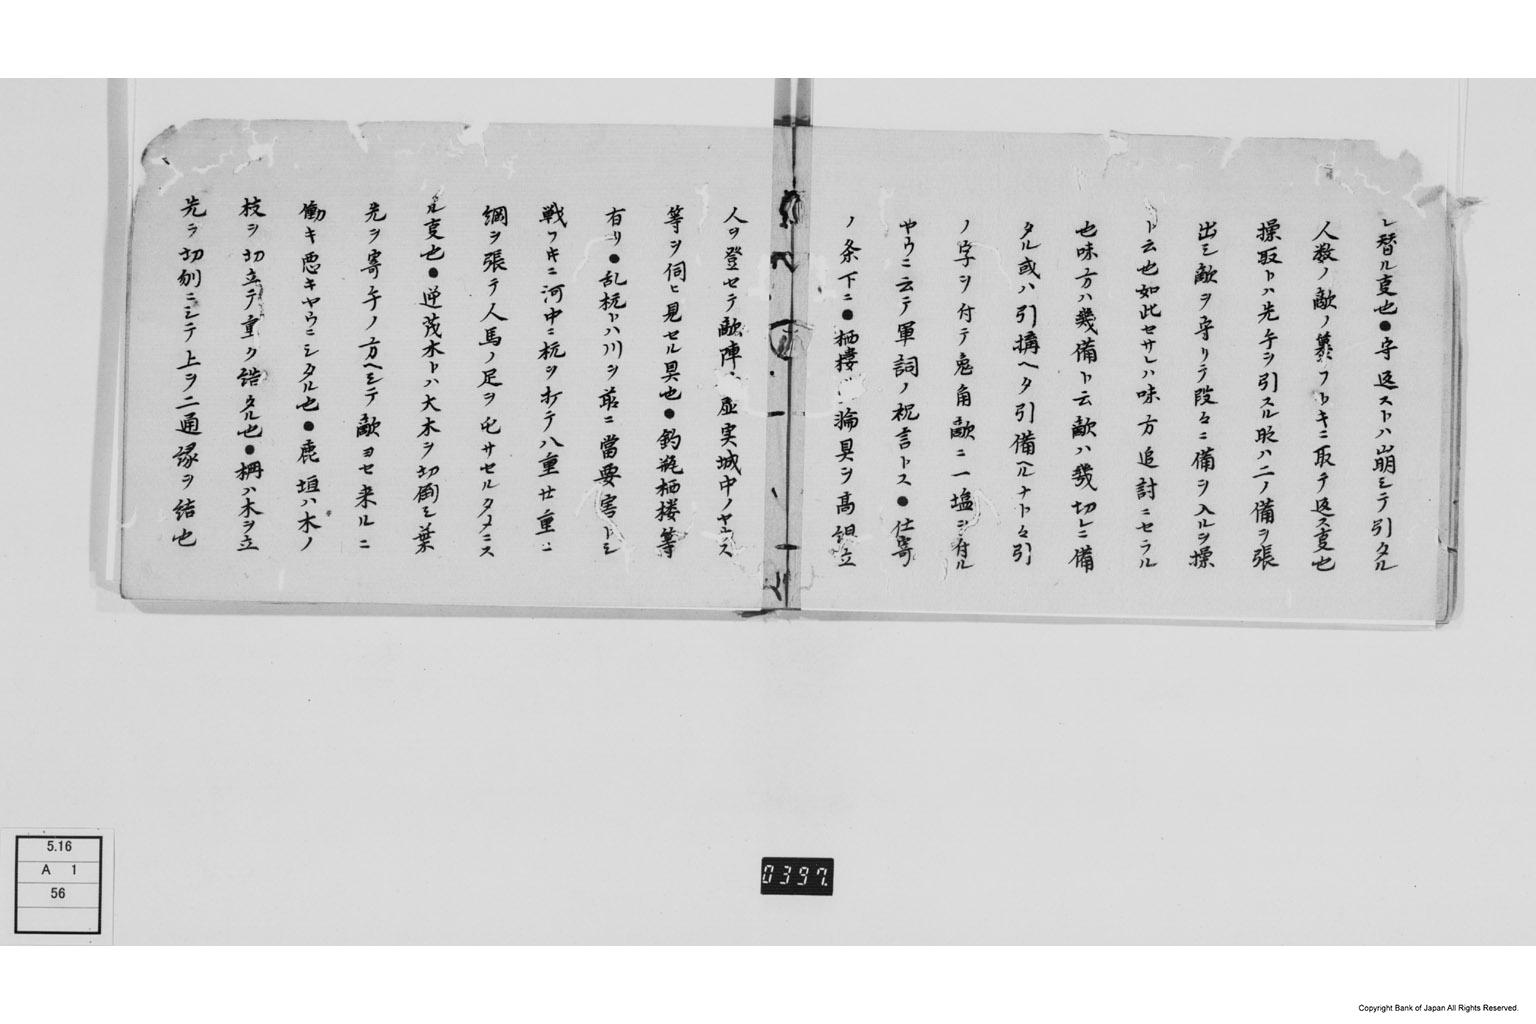 レ替ル亥也●守返ストハ崩シテ引タル
人数ノ敵ノ慕フトキニ取テ返ス亥也
操取トハ先手ヲ引スル時ハ二ノ備ヲ張
出シ敵ヲ守リテ段々ニ備ヲ入ルヲ操
ト云也如此セサレハ味方追討ニセラル
也味方ハ幾備ト云敵ハ幾切レニ備
タル或ハ引搆ヘタ引備ヘルナト々引
ノ字ヲ付テ兎角敵ニ一塩ヲ付ル
ヤウニ云テ軍詞ノ祝言トス●仕寄
ノ条下ニ●栖楼 輪具ヲ高組立
人ヲ登セテ敵陣 虚実城中ノヤウス
等ヲ伺ヒ見セル具也●釣瓶栖楼等
有リ●乱杭トハ川ヲ前ニ當要害トシ
戦フキニ河中ニ杭ヲ打テ八重廿重ニ
綱ヲ張テ人馬ノ足ヲ屯サセルタメニス
ル亥也●逆茂木トハ大木ヲ切倒シ葉
先ヲ寄手ノ方ヘシテ敵ヨセ来ルニ
働キ悪キヤウニシタル也●鹿垣ハ木ノ
枝ヲ切立テ重ク詰タル也●柵ハ木ヲ立
先ヲ切刎ニシテ上ヲ二通縁ヲ結也
5.16
A 1
56
0397.
Copyright Bank of Japan All Rights Reserved.